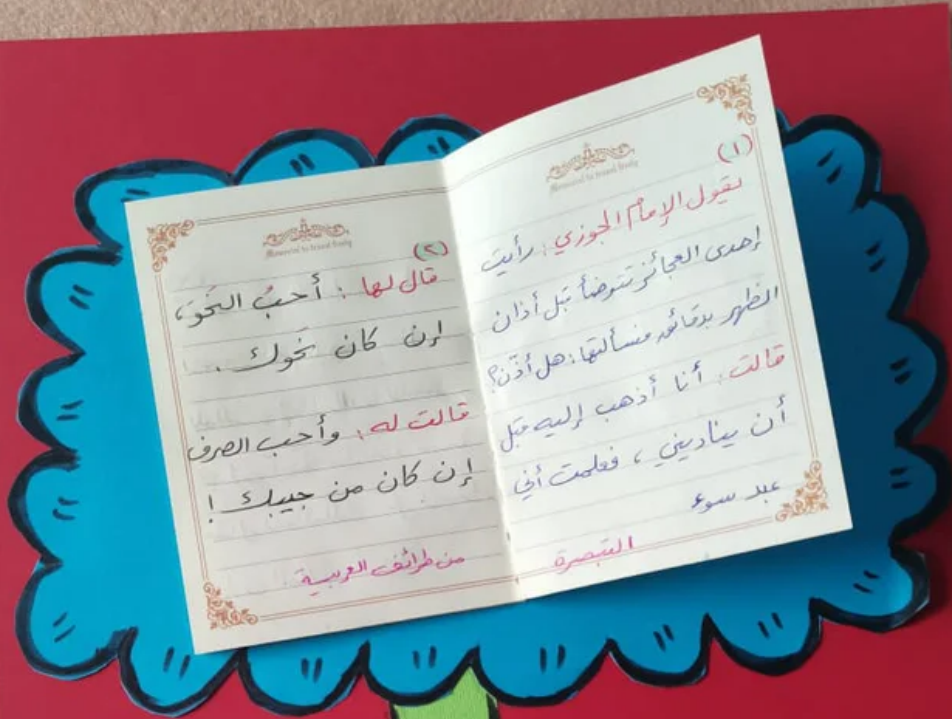 (١)
يقول الإمام الجوزي: رأيت
إحدى العجائز تتوضأ قبل أذان
الظهر بدقائق فسألتها: هل أذّن؟
قالت: أنا أذهب إليه قبل
أن يناديني، فعلمت أني
عبد سوء
التبصرة
(٢)
قال لها: أحبُ النَحوَ،
إن كان نَحوك.
قالت له: وأحب الصرف
إن كان من جيبك!
من طرائف العربية
Memorial to travel freely